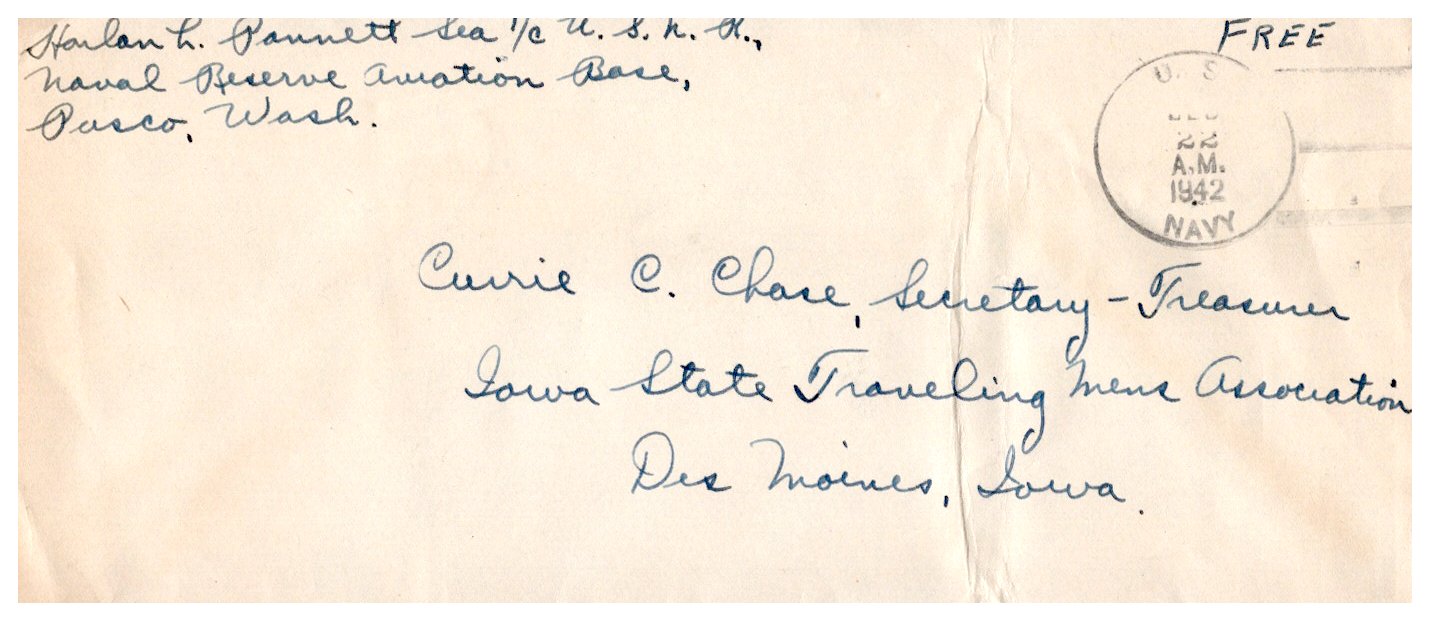 Harlan L. Pannett Sea 1/c U. S. N. R.,
Naval Reserve Aviation Base,
Pasco, Wash.
FREE
U. S.
DEC
22
A.M.
1942
NAVY
Currie C. Chase, Secretary-Treasurer
Iowa State Traveling Mens Association
Des Moines, Iowa.